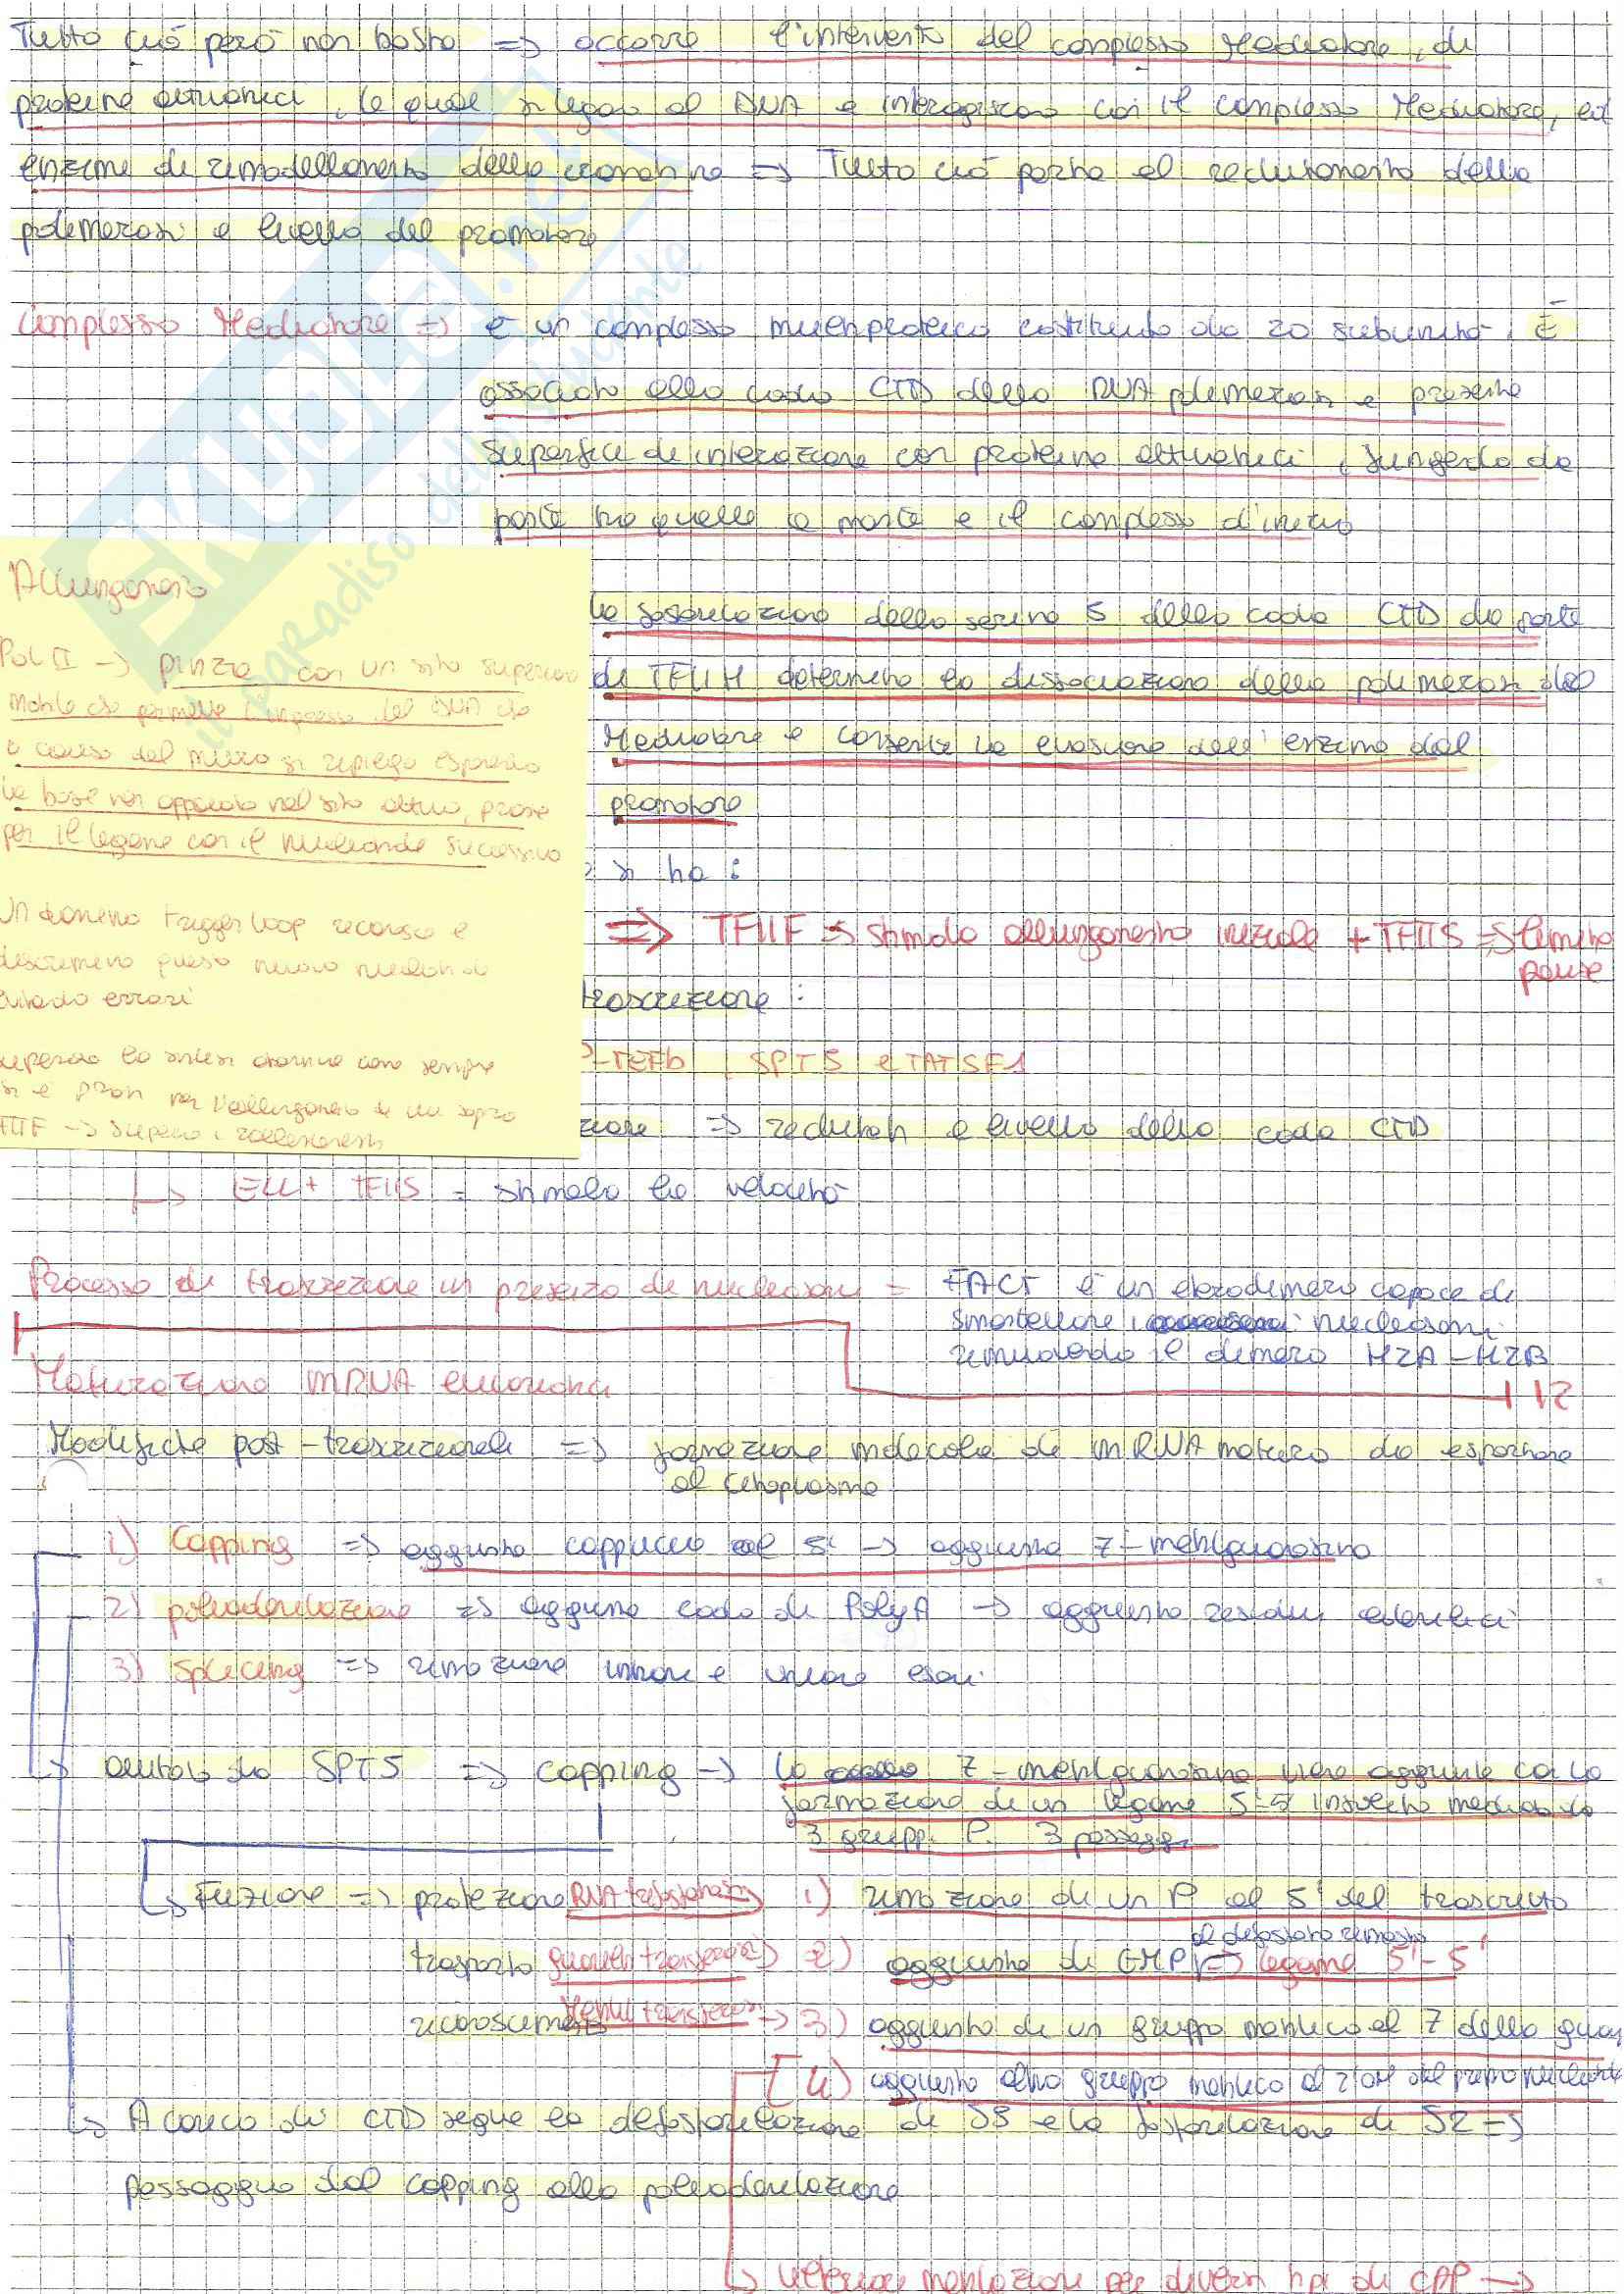 Tutto ciò però non basta => occorre l'intervento del complesso Mediatore, di
proteine attivatrici, le quali si legano al DNA e interagiscono con il complesso Mediatore, ed
enzimi di rimodellamento della cromatina => Tutto ciò porta al reclutamento della
polimerasi a livello del promotore
Complesso Mediatore => è un complesso multiproteico costituito da 20 subunità. È
associato alla coda CTD della RNA polimerasi e presenta
superfici di interazione con proteine attivatrici, fungendo da
ponte tra quelle a monte e il complesso d'inizio
la fosforilazione della serina 5 della coda CTD da parte
di TFIIH determina la dissociazione della polimerasi dal
Mediatore e consente la evasione dell'enzima dal
promotore
si ha:
=> TFIIF => stimola allungamento iniziale + TFIIS => Elimina
pause
trascrizione:
P-TEFb, SPT5 e TATSF1
=> reclutati a livello della coda CTD
Allungamento
Pol II -> pinza con un sito superiore
mobile che permette l'ingresso del DNA che
a causa del muro si ripiega esponendo
la base non appaiata nel sito attivo, pronta
per il legame con il nucleotide successivo
Un dominio trigger loop riconosce e
discrimina questo nuovo nucleotide
evitando errori
-> supera i rallentamenti
Ell + TFIIS = stimola la velocità
Processo di trascrizione in presenza di nucleosomi = FACT è un eterodimero capace di
smantellare i nucleosomi
rimuovendo il dimero H2A-H2B
Maturazione mRNA eucariotici
12
Modifiche post-trascrizionali => formazione molecola di mRNA maturo da esportare
al citoplasma
1) Capping => aggiunta cappuccio al 5' -> aggiunta 7-metilguanosina
2) poliadenilazione => aggiunta coda di PolyA -> aggiunta residui adenilici
3) Splicing => rimozione introni e unione esoni
aiutato da SPT5 => capping -> la 7-metilguanosina viene aggiunta con la
formazione di un legame 5'-5' insolito mediato da
3 gruppi P. 3 passaggi
Funzione => protezione RNA trifosfatasi 1) rimozione di un P al 5' del trascritto
al difosfato rimasto
trasporto guanil transferasi 2) aggiunta di GMP => legame 5'-5'
riconoscimento Metil transferasi -> 3) aggiunta di un gruppo metilico al 7 della guan
[4) aggiunta altro gruppo metilico al 2'OH del primo nucleotide
A carico di CTD segue la defosforilazione di S5 e la fosforilazione di S2 =>
passaggio dal capping alla poliadenilazione
ulteriori metilazioni per diversi tipi di CAP ->
SKUOLA.net
il paradiso dello studente